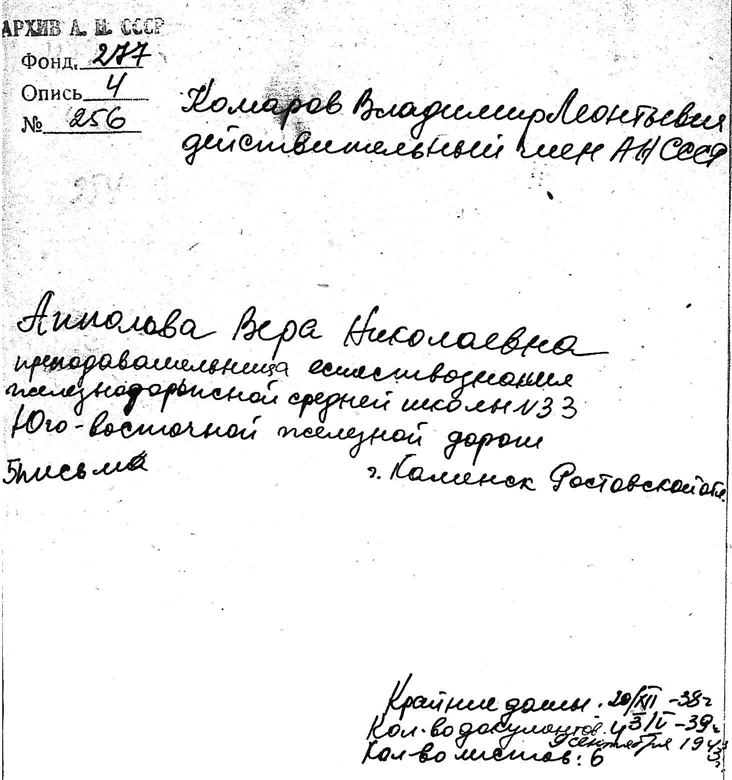 АРХИВ А. Н. СССР
Фонд. 277
Опись 4
№ 256
Комаров Владимир Леонтьевич
действительный член АН СССР
Апполова Вера Николаевна
преподавательница естествознания
железнодорожной средней школы №33
Юго-восточной железной дороги
5 письма
г. Каменск Ростовской обл.
Крайние даты. 20/XII -38г
3/V -39г
Кол-во документов. 4
9 сентября 1943
Кол-во листов: 6